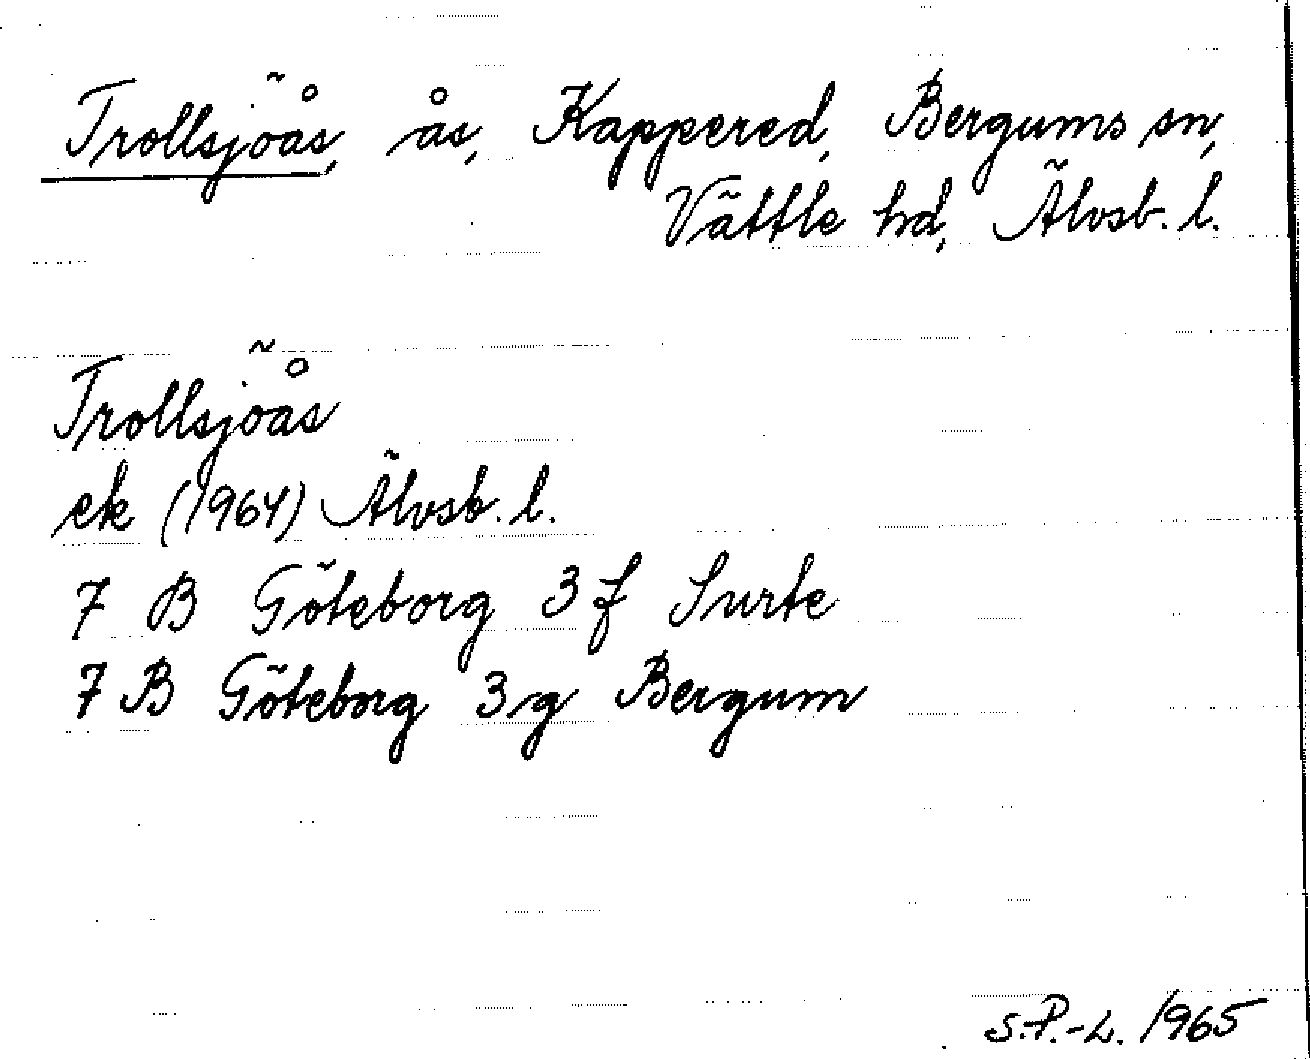 Trollsjöås, ås, Kappered, Bergums sn,
Vättle hd, Älvsb. l.
Trollsjöås
ek (1964) Älvsb. l.
7 B Göteborg 3 f Surte
7 B Göteborg 3 g Bergum
S.P.-L. 1965